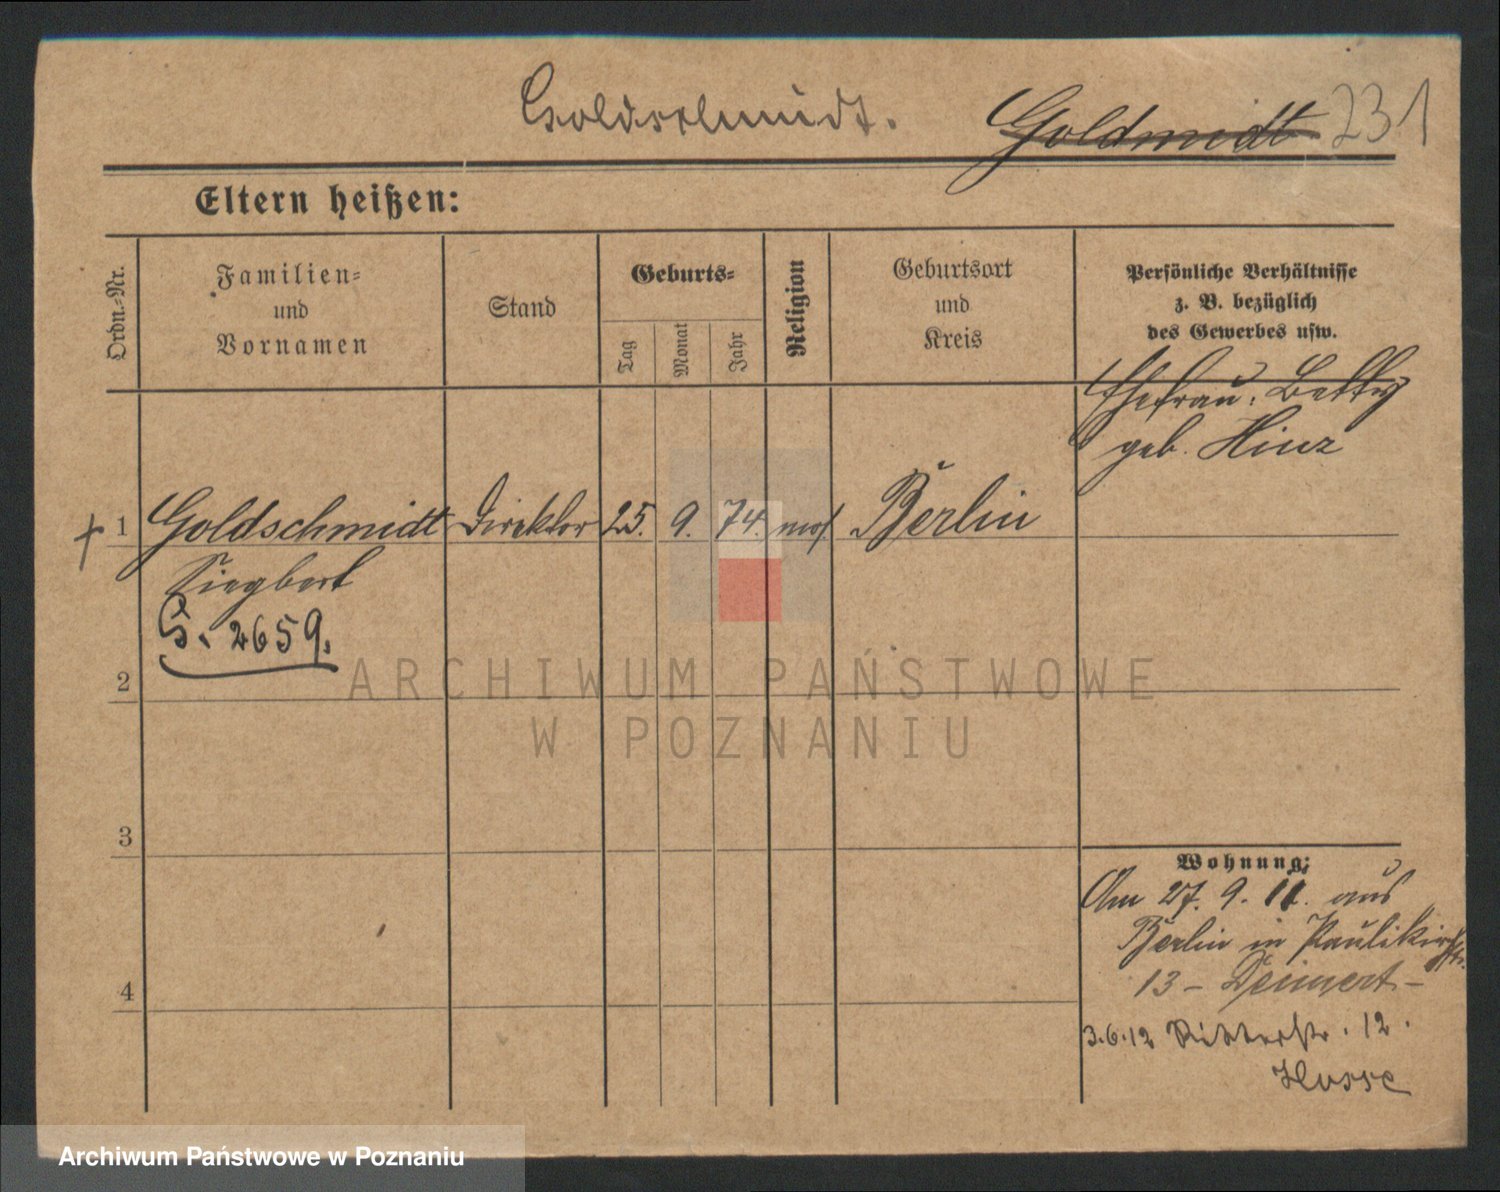 Goldschmidt. Goldmidt 231
Eltern heißen:
Ordn.-Nr.
Familien-
und
Vornamen
Stand
Geburts-
Tag
Monat
Jahr
Religion
Geburtsort
und
Kreis
Persönliche Verhältnisse
z. B. bezüglich
des Gewerbes usw.
Ehefrau: Betty
geb. Hinz
† 1 Goldschmidt Direktor 25. 9. 74. mos. Berlin
Siegbert
G. 2659.
2
3
4
Wohnung:
Am 27. 9. 11. aus
Berlin in Paulikirchstr.
13 –
3.6.12 Ritterstr. 12.
ARCHIWUM PAŃSTWOWE
W POZNANIU
Archiwum Państwowe w Poznaniu